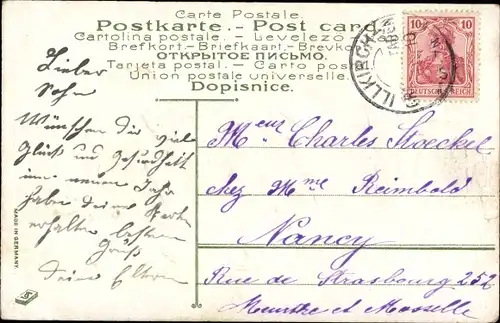 Carte Postale.
Postkarte. Post card
Cartolina postale - Levelezo
Brefkort. - Briefkaart. - Brevko
ОТКРЫТОЕ ПИСЬМО.
Tarjeta postal. - Carto posta
Union postale universelle.
Dopisnice.
ILLKIRCH
10 10
DEUTSCHES REICH
Lieber
Sohn
Wünschen dir viel
Glück und Gesundheit
im neuen Jahr
haben deine Karten
erhalten besten
Gruß
deine Eltern
Meur Charles Stoeckel
chez Mme Reimbold
Nancy
Rue de Strasbourg 252
Meurthe et Moselle
MADE IN GERMANY.